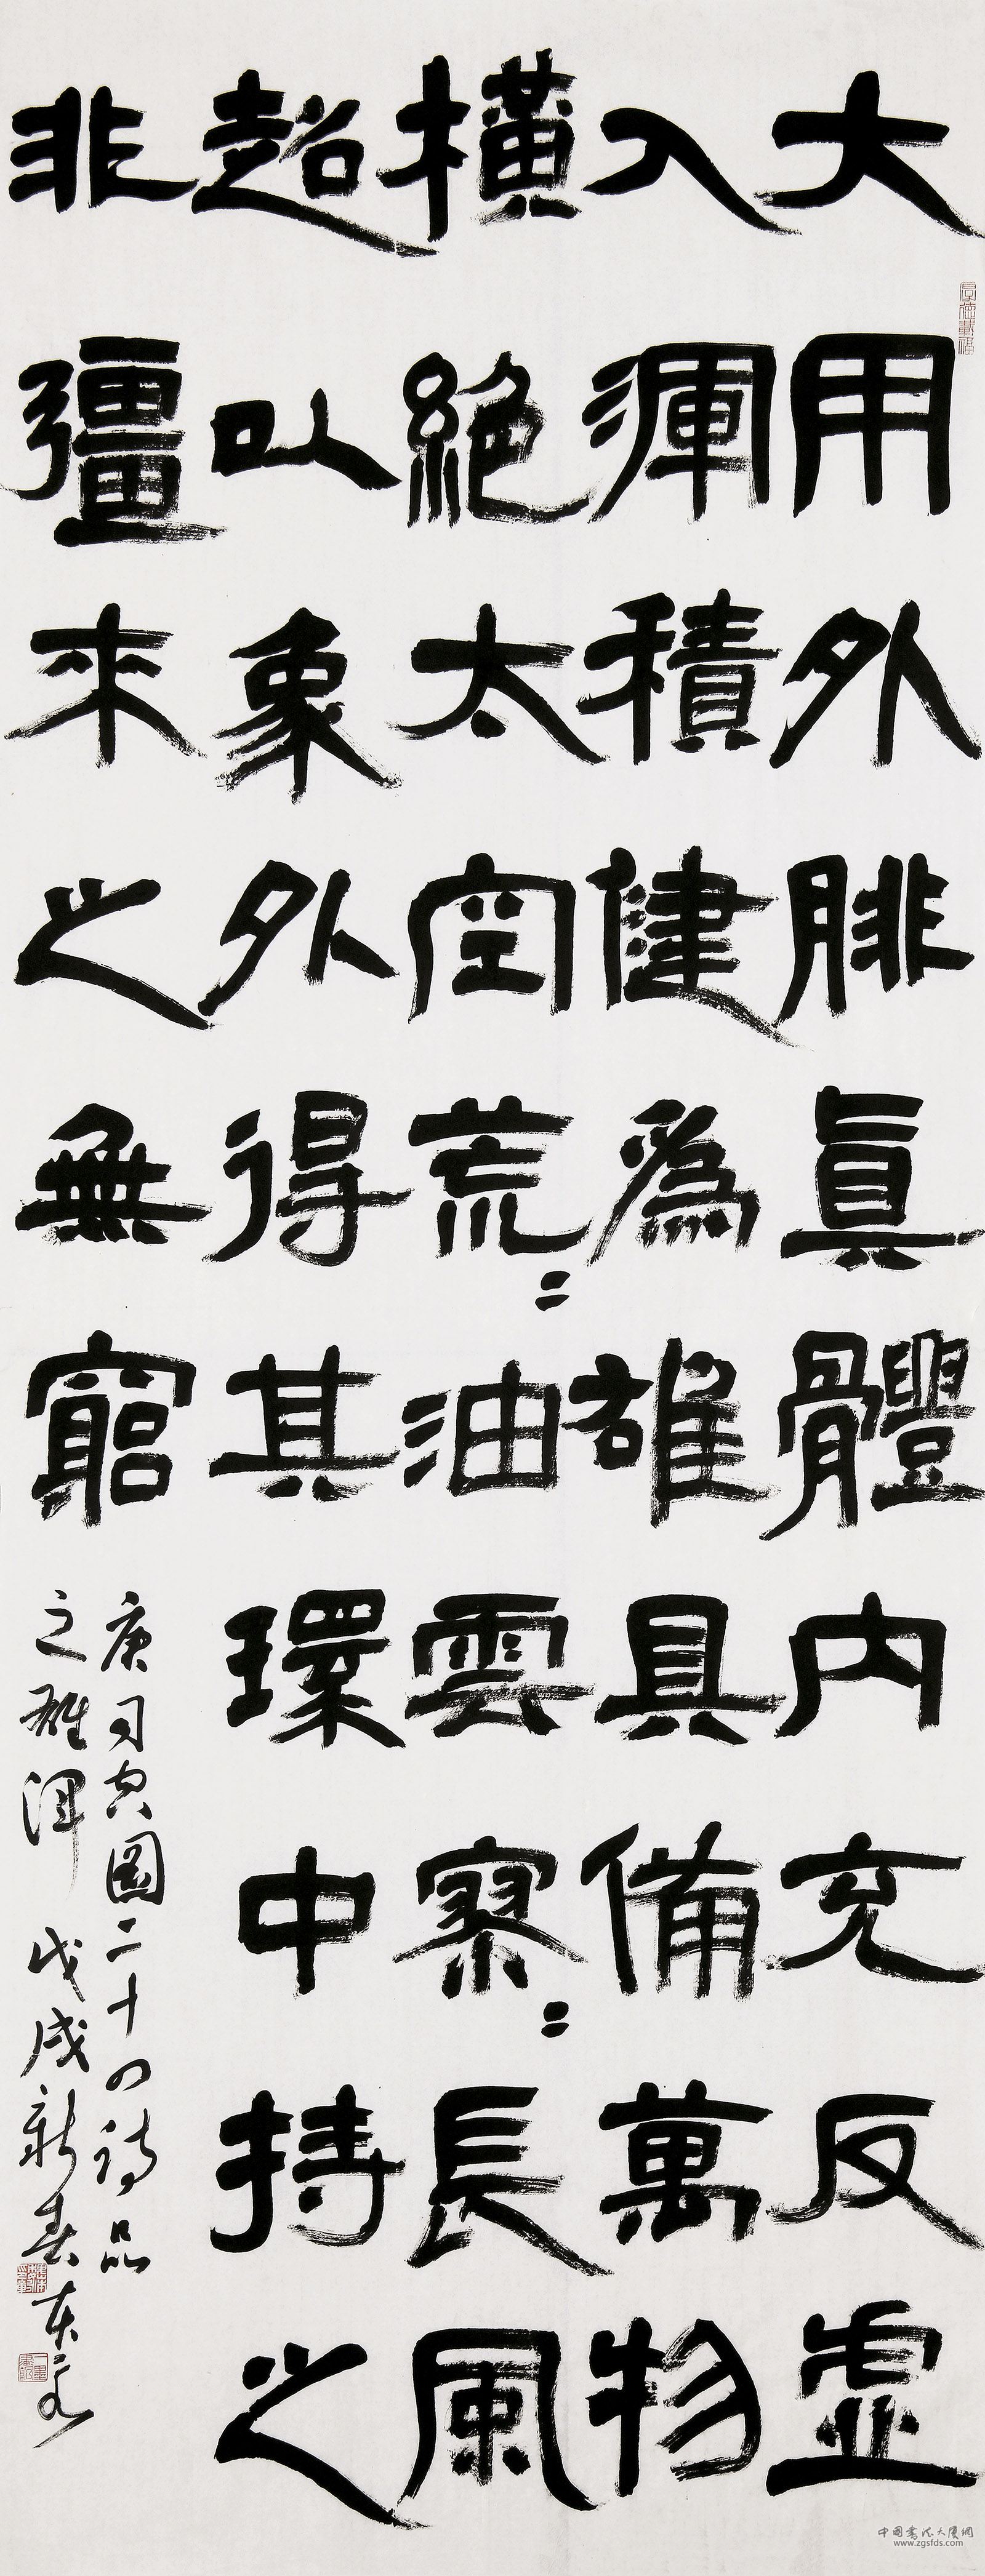 大用外腓真體内充反虚
入渾積健爲雄具備萬物
橫絶太空荒〻油雲寥〻長風
超以象外得其環中持之
非彊來之無窮
司空圖二十四詩品
之雄渾 戊戌新春
厚德載福
中国书法大厦网
www.zgsfds.com